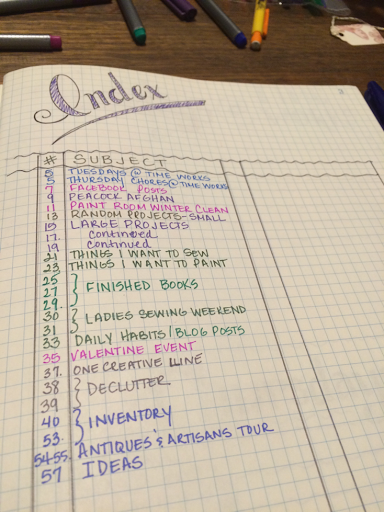 Index
# SUBJECT
5 TUESDAYS @ TIME WORKS
5 THURSDAY CHORES @ TIME WORKS
7 FACEBOOK POSTS
9 PEACOCK AFGHAN
11 PAINT ROOM WINTER CLEAN
13 RANDOM PROJECTS-SMALL
15 LARGE PROJECTS
17. continued
19 continued
21 THINGS I WANT TO SEW
23 THINGS I WANT TO PAINT
25
27 } FINISHED BOOKS
29.
30 } LADIES SEWING WEEKEND
31
33 DAILY HABITS/BLOG POSTS
35 VALENTINE EVENT
37. ONE CREATIVE LINE
38 } DECLUTTER
39
40 } INVENTORY
53.
54-55. ANTIQUES & ARTISANS TOUR
57 IDEAS